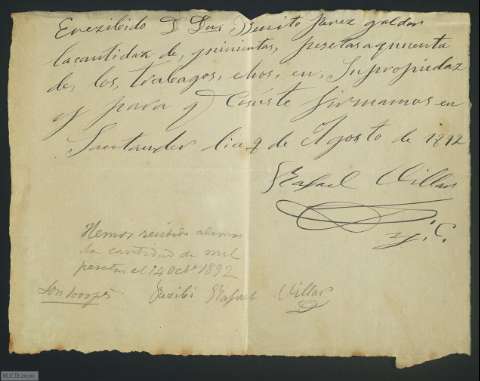 E rezibido D Dn Benito Perez galdos
la cantidaz de, quinientas, pesetas a quenta
de, los, trabagos, echos, en, Su propiedaz
y para q Conste firmamos en
Santander Dia 9 de Agosto de 1892
Rafael Villar
y C.
Hemos recibido
la cantidad de mil
pesetas el 14 Octe 1892
Rezibi Rafael Villar